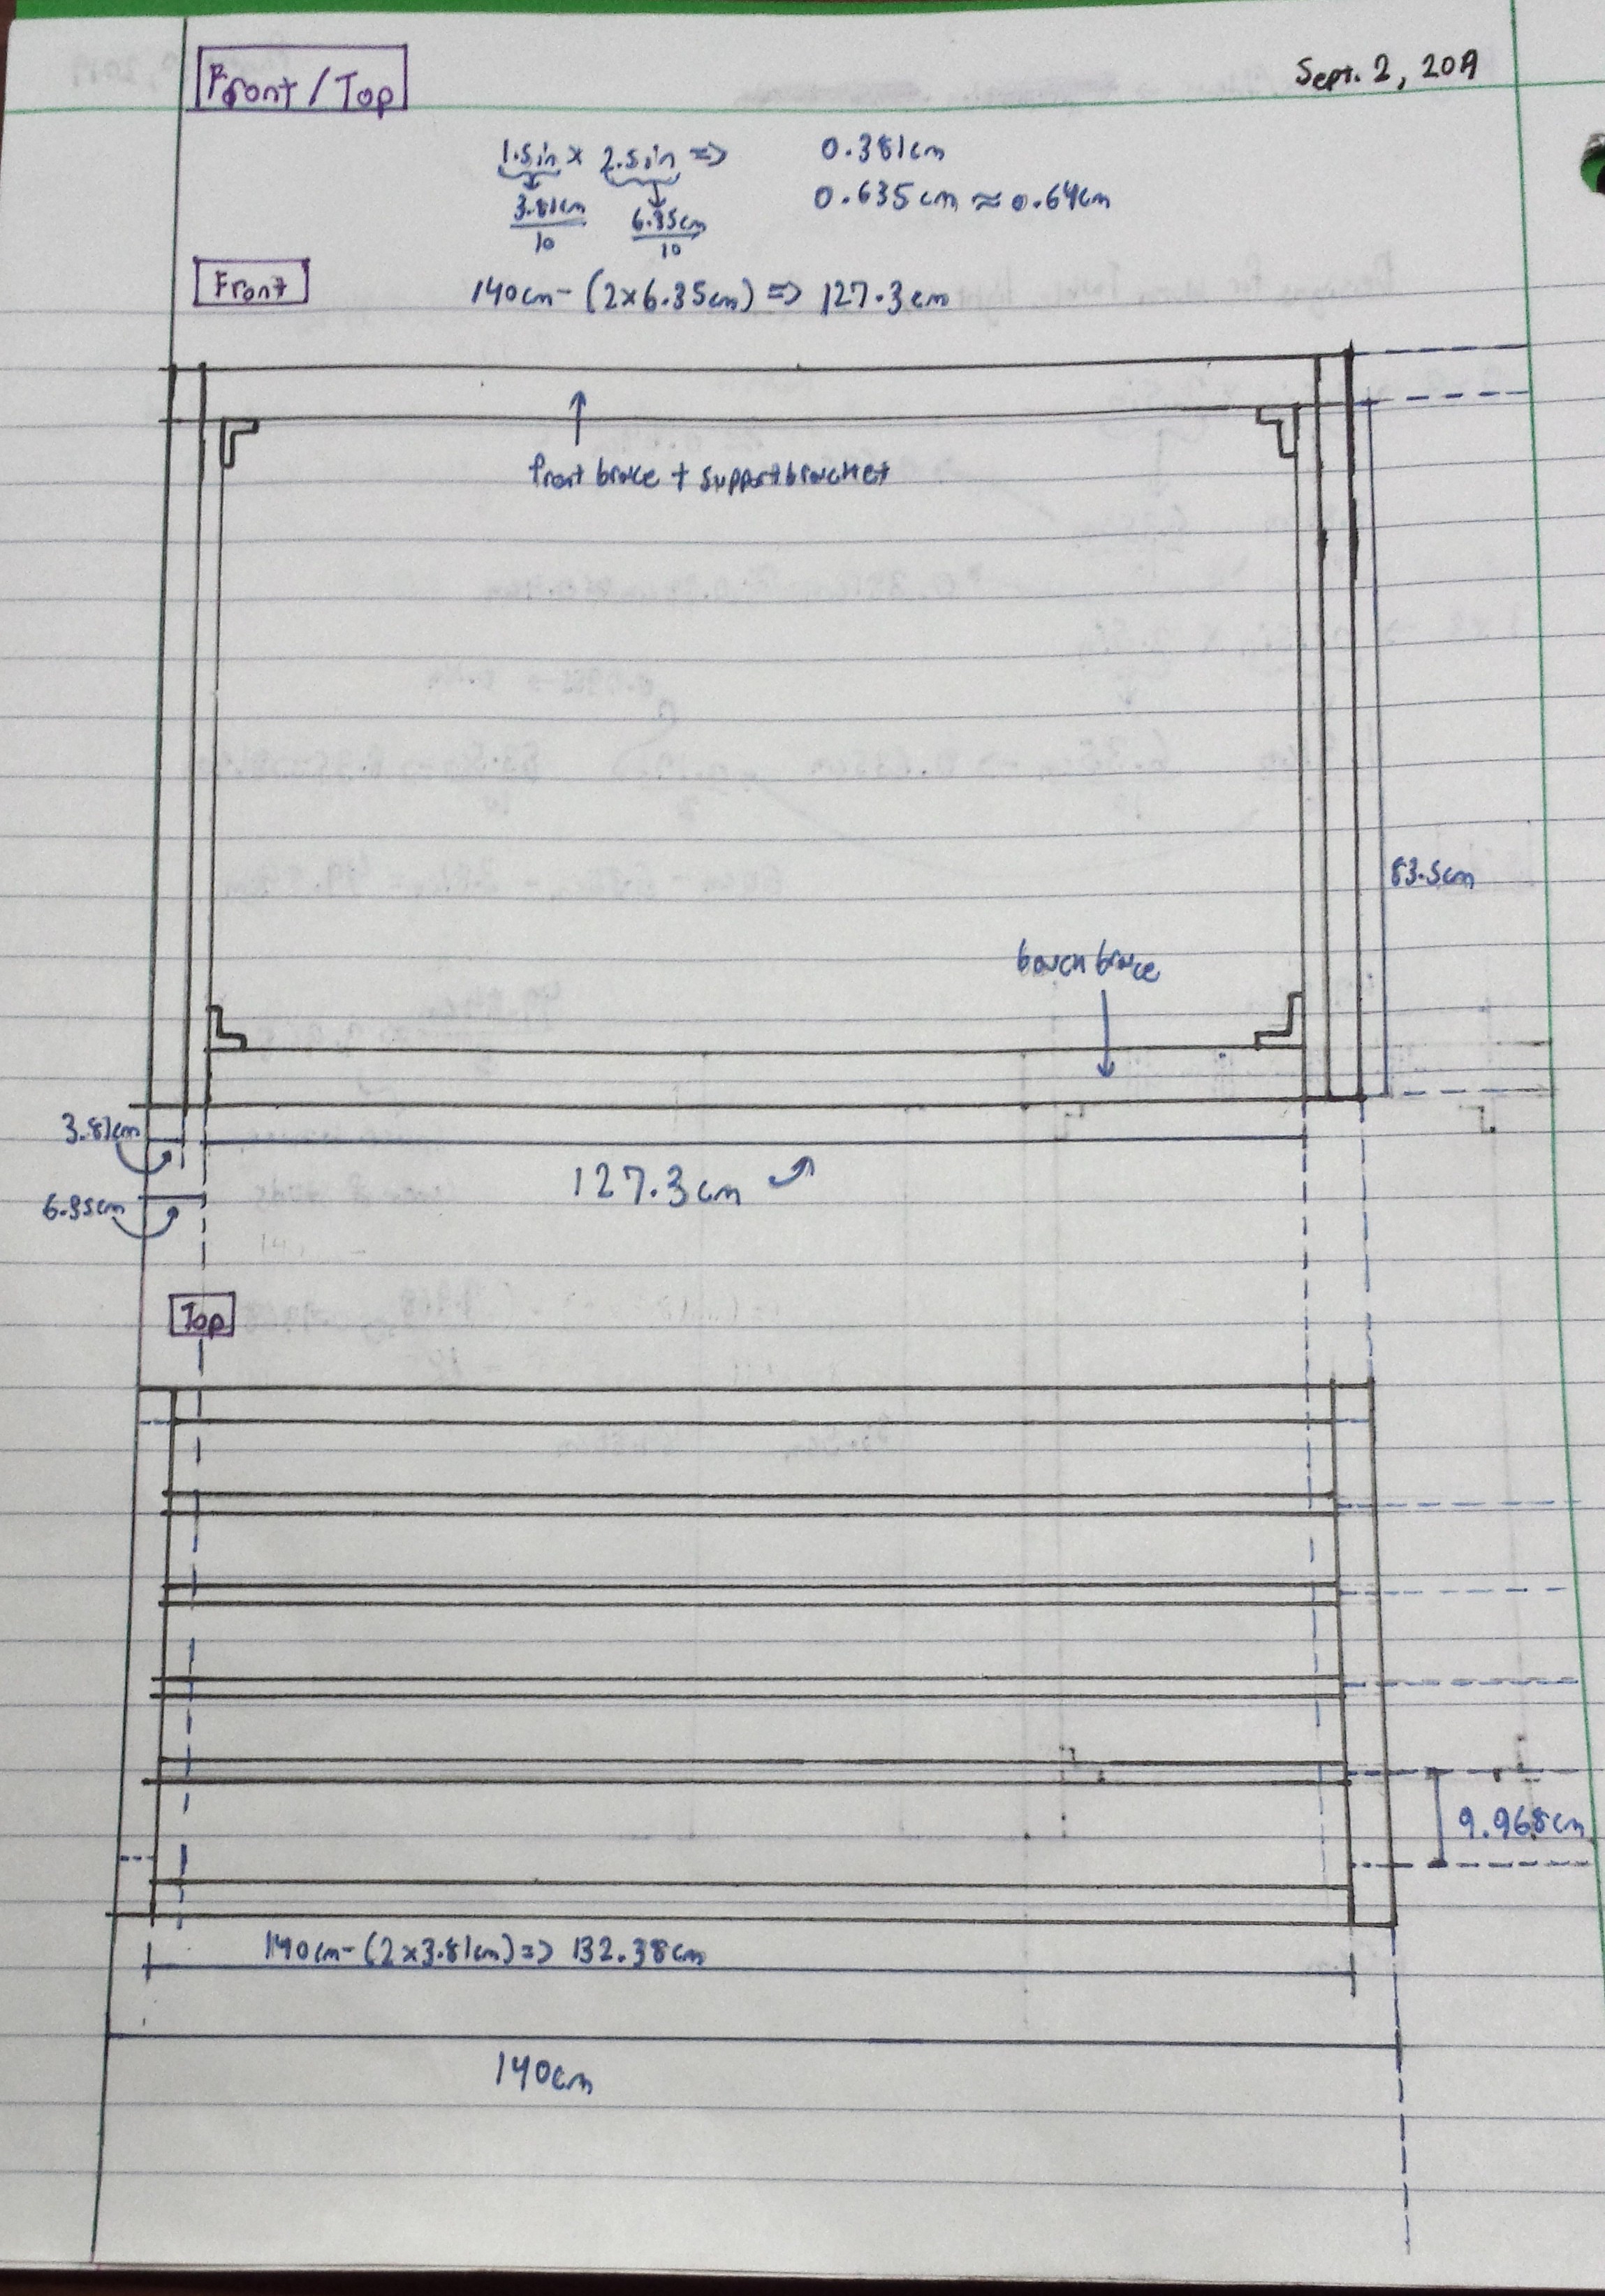 Front/Top
Sept. 2, 2019
1.5in x 2.5in => 0.381cm
3.81cm/10 6.35cm/10 0.635cm ≈ 0.64cm
Front
140cm - (2x6.35cm) => 127.3cm
front brace + support bracket
83.5cm
back brace
3.81cm
127.3cm
6.35cm
Top
9.968cm
140cm - (2x3.81cm) => 132.38cm
140cm